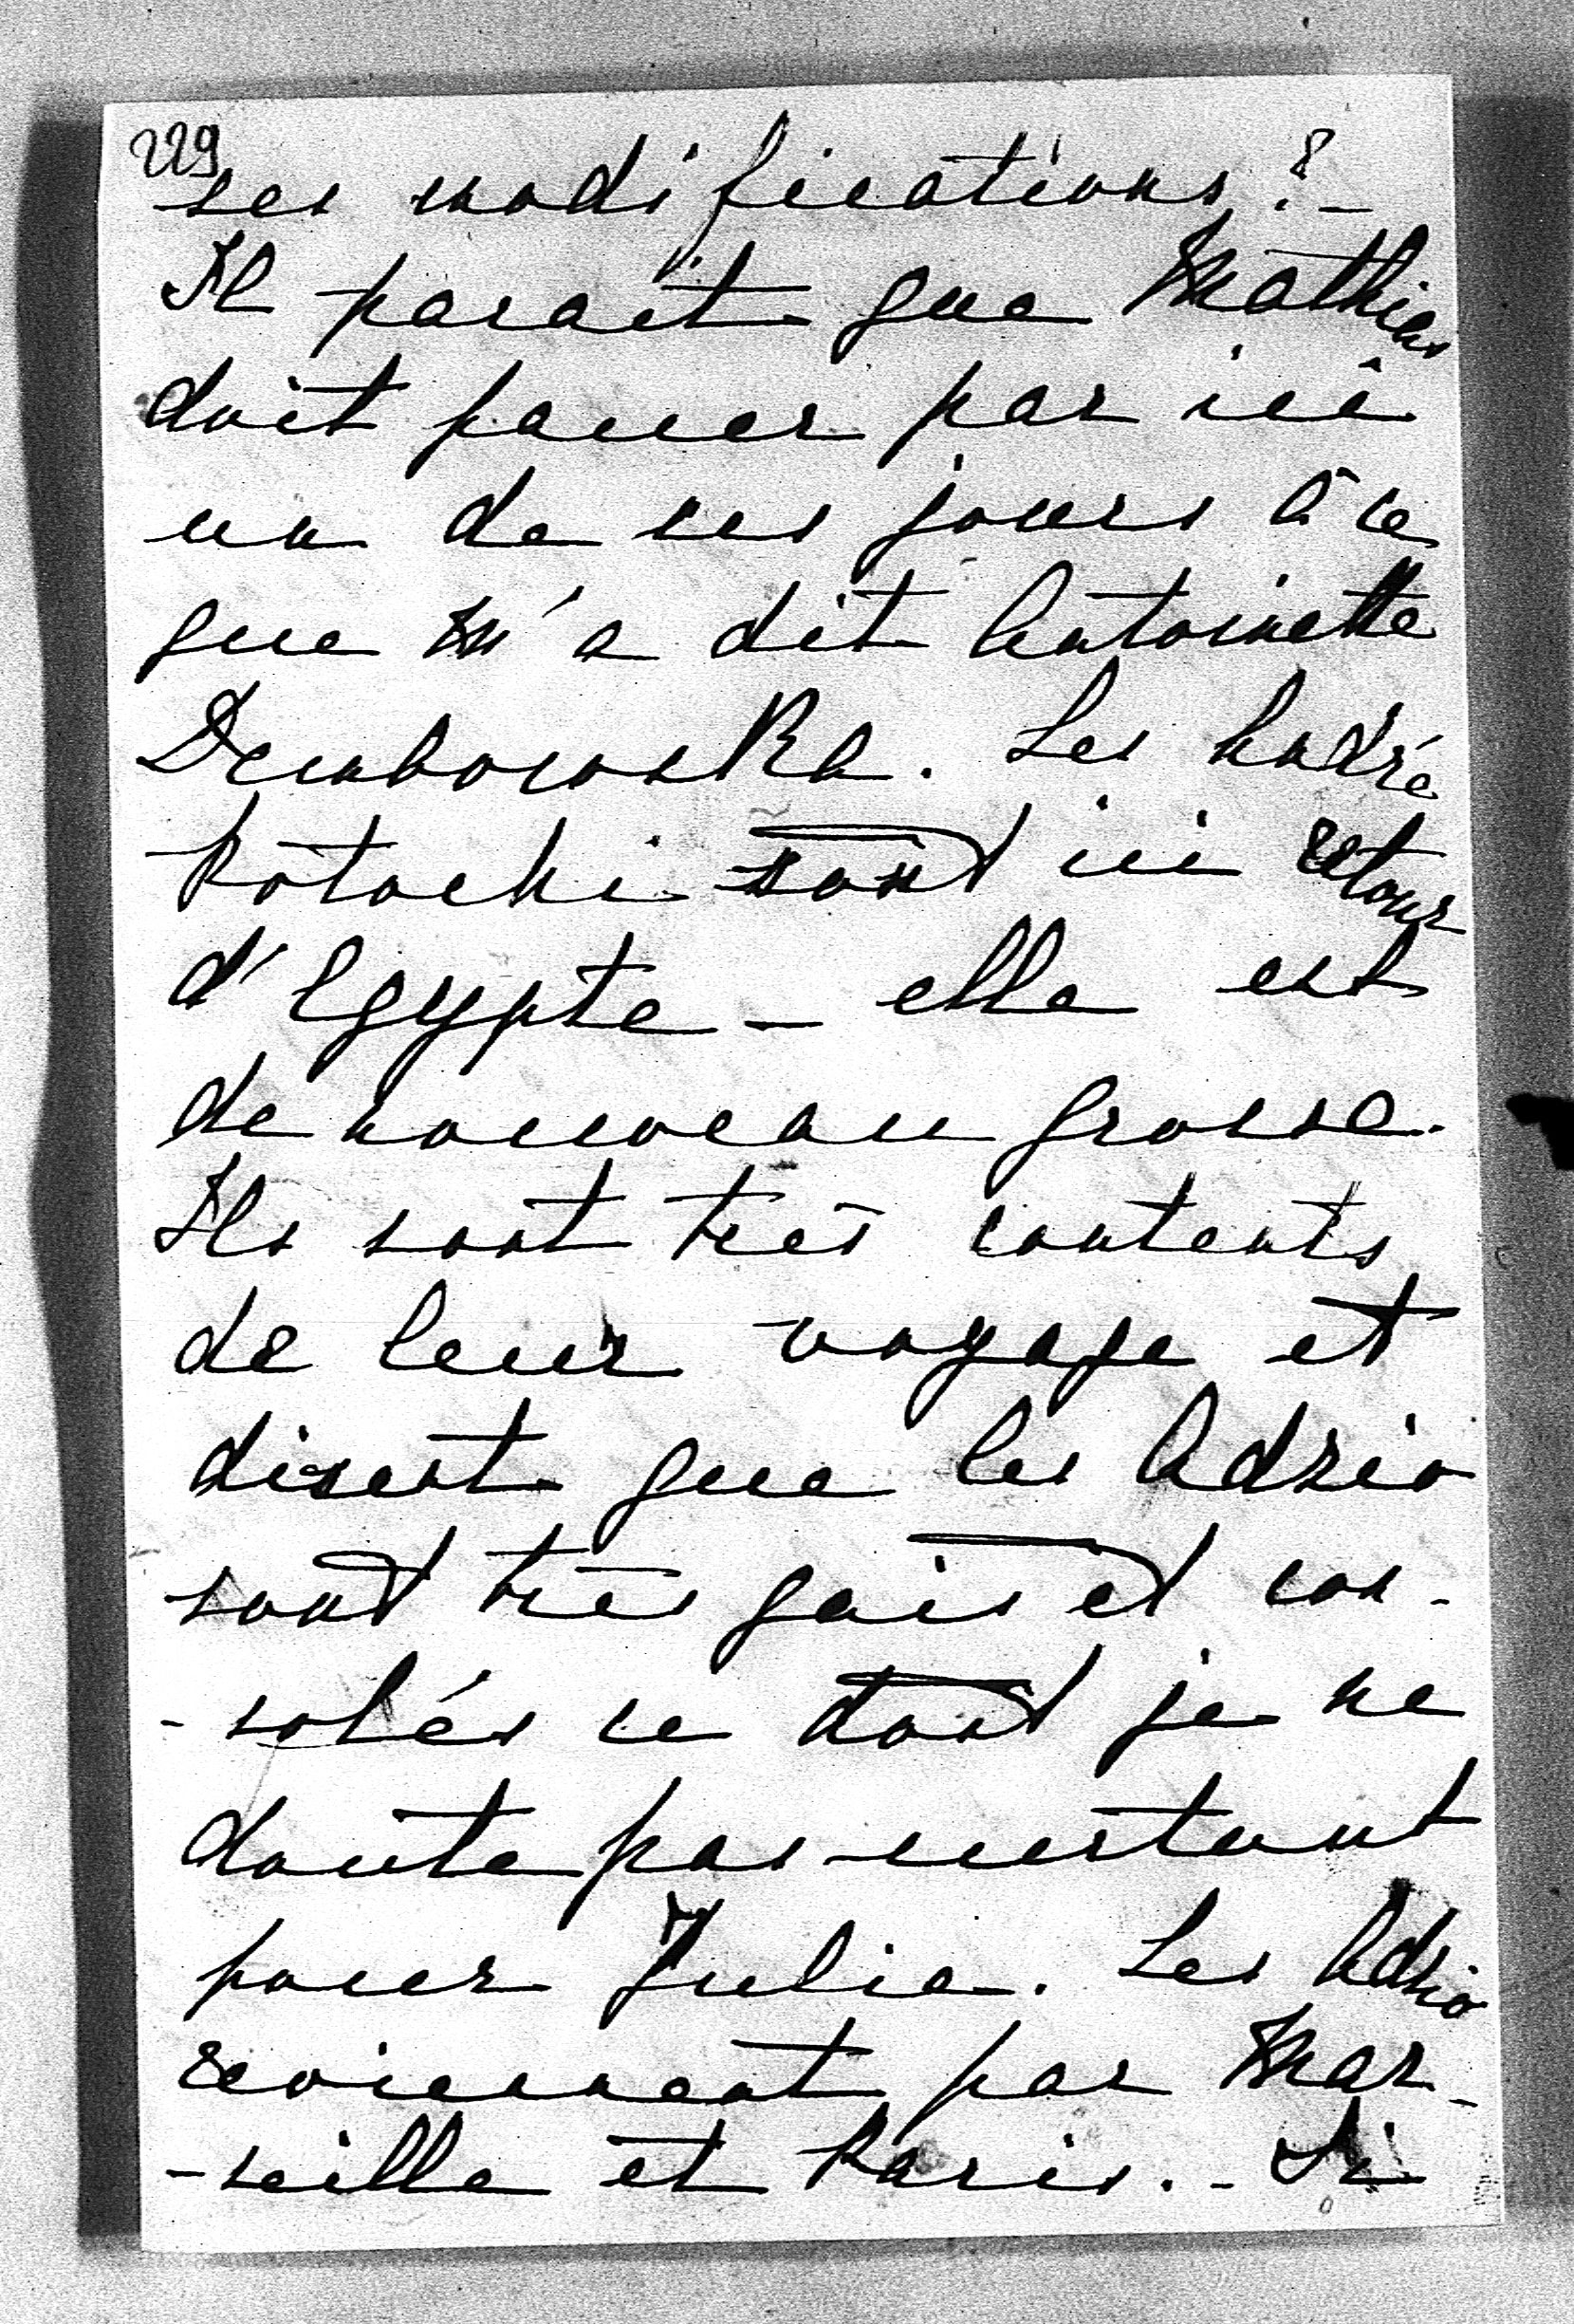 229
ses modifications ? _
Il parait que Mathias
doit passer par ici
un de ces jours à ce
que m'a dit Antoinette
Dembowska. Les André
Potocki sont ici retour
d'Egypte – elle est
de nouveau grosse.
Ils sont très contents
de leur voyage et
disent que les Adzio
sont très gais et con-
-solés ce dont je ne
doute pas surtout
pour Julie. Les Adzio
reviennent par Mar-
-seille et Paris. - Si